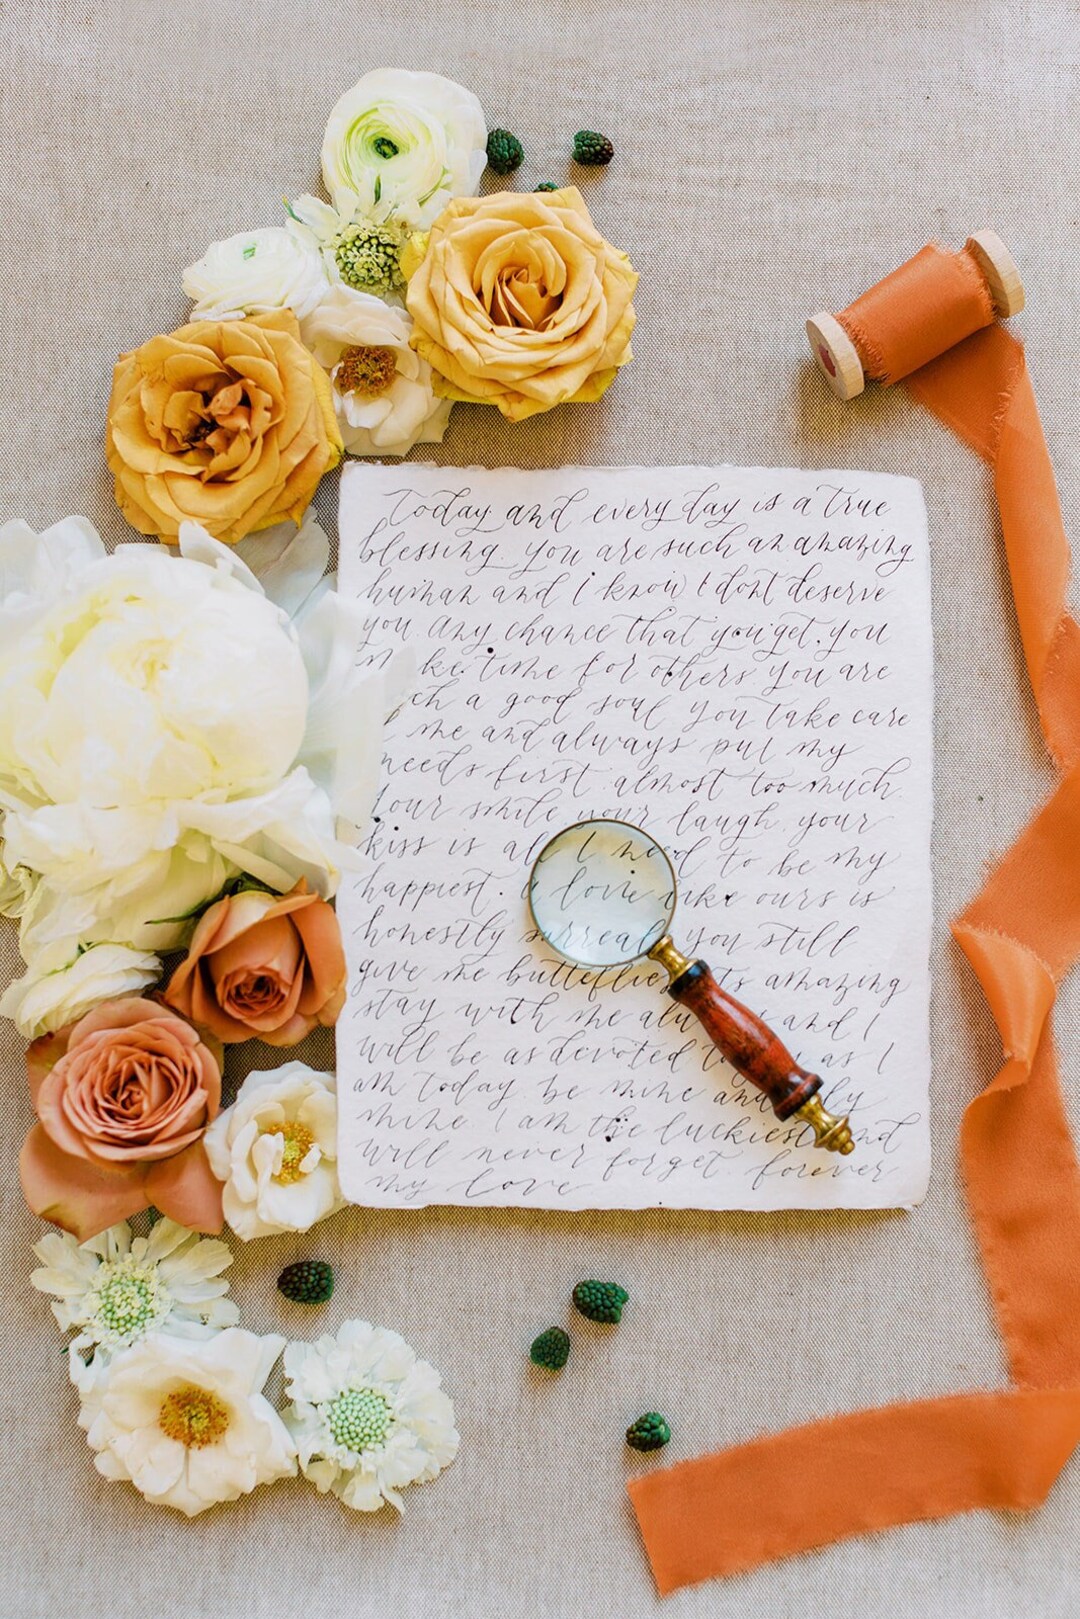 Today and every day is a true
blessing. you are such an amazing
human and I know I dont deserve
you. Any chance that you get, you
ke time for others. you are
ch a good soul you take care
me and always put my
needs first. almost too much.
Your smile, your laugh, your
kiss is all I need to be my
happiest. a love like ours is
honestly surreal you still
give me butterflies its amazing
stay with me and I
will be as devoted as I
am today be mine and
mine I am the luckiest and
will never forget forever
my love